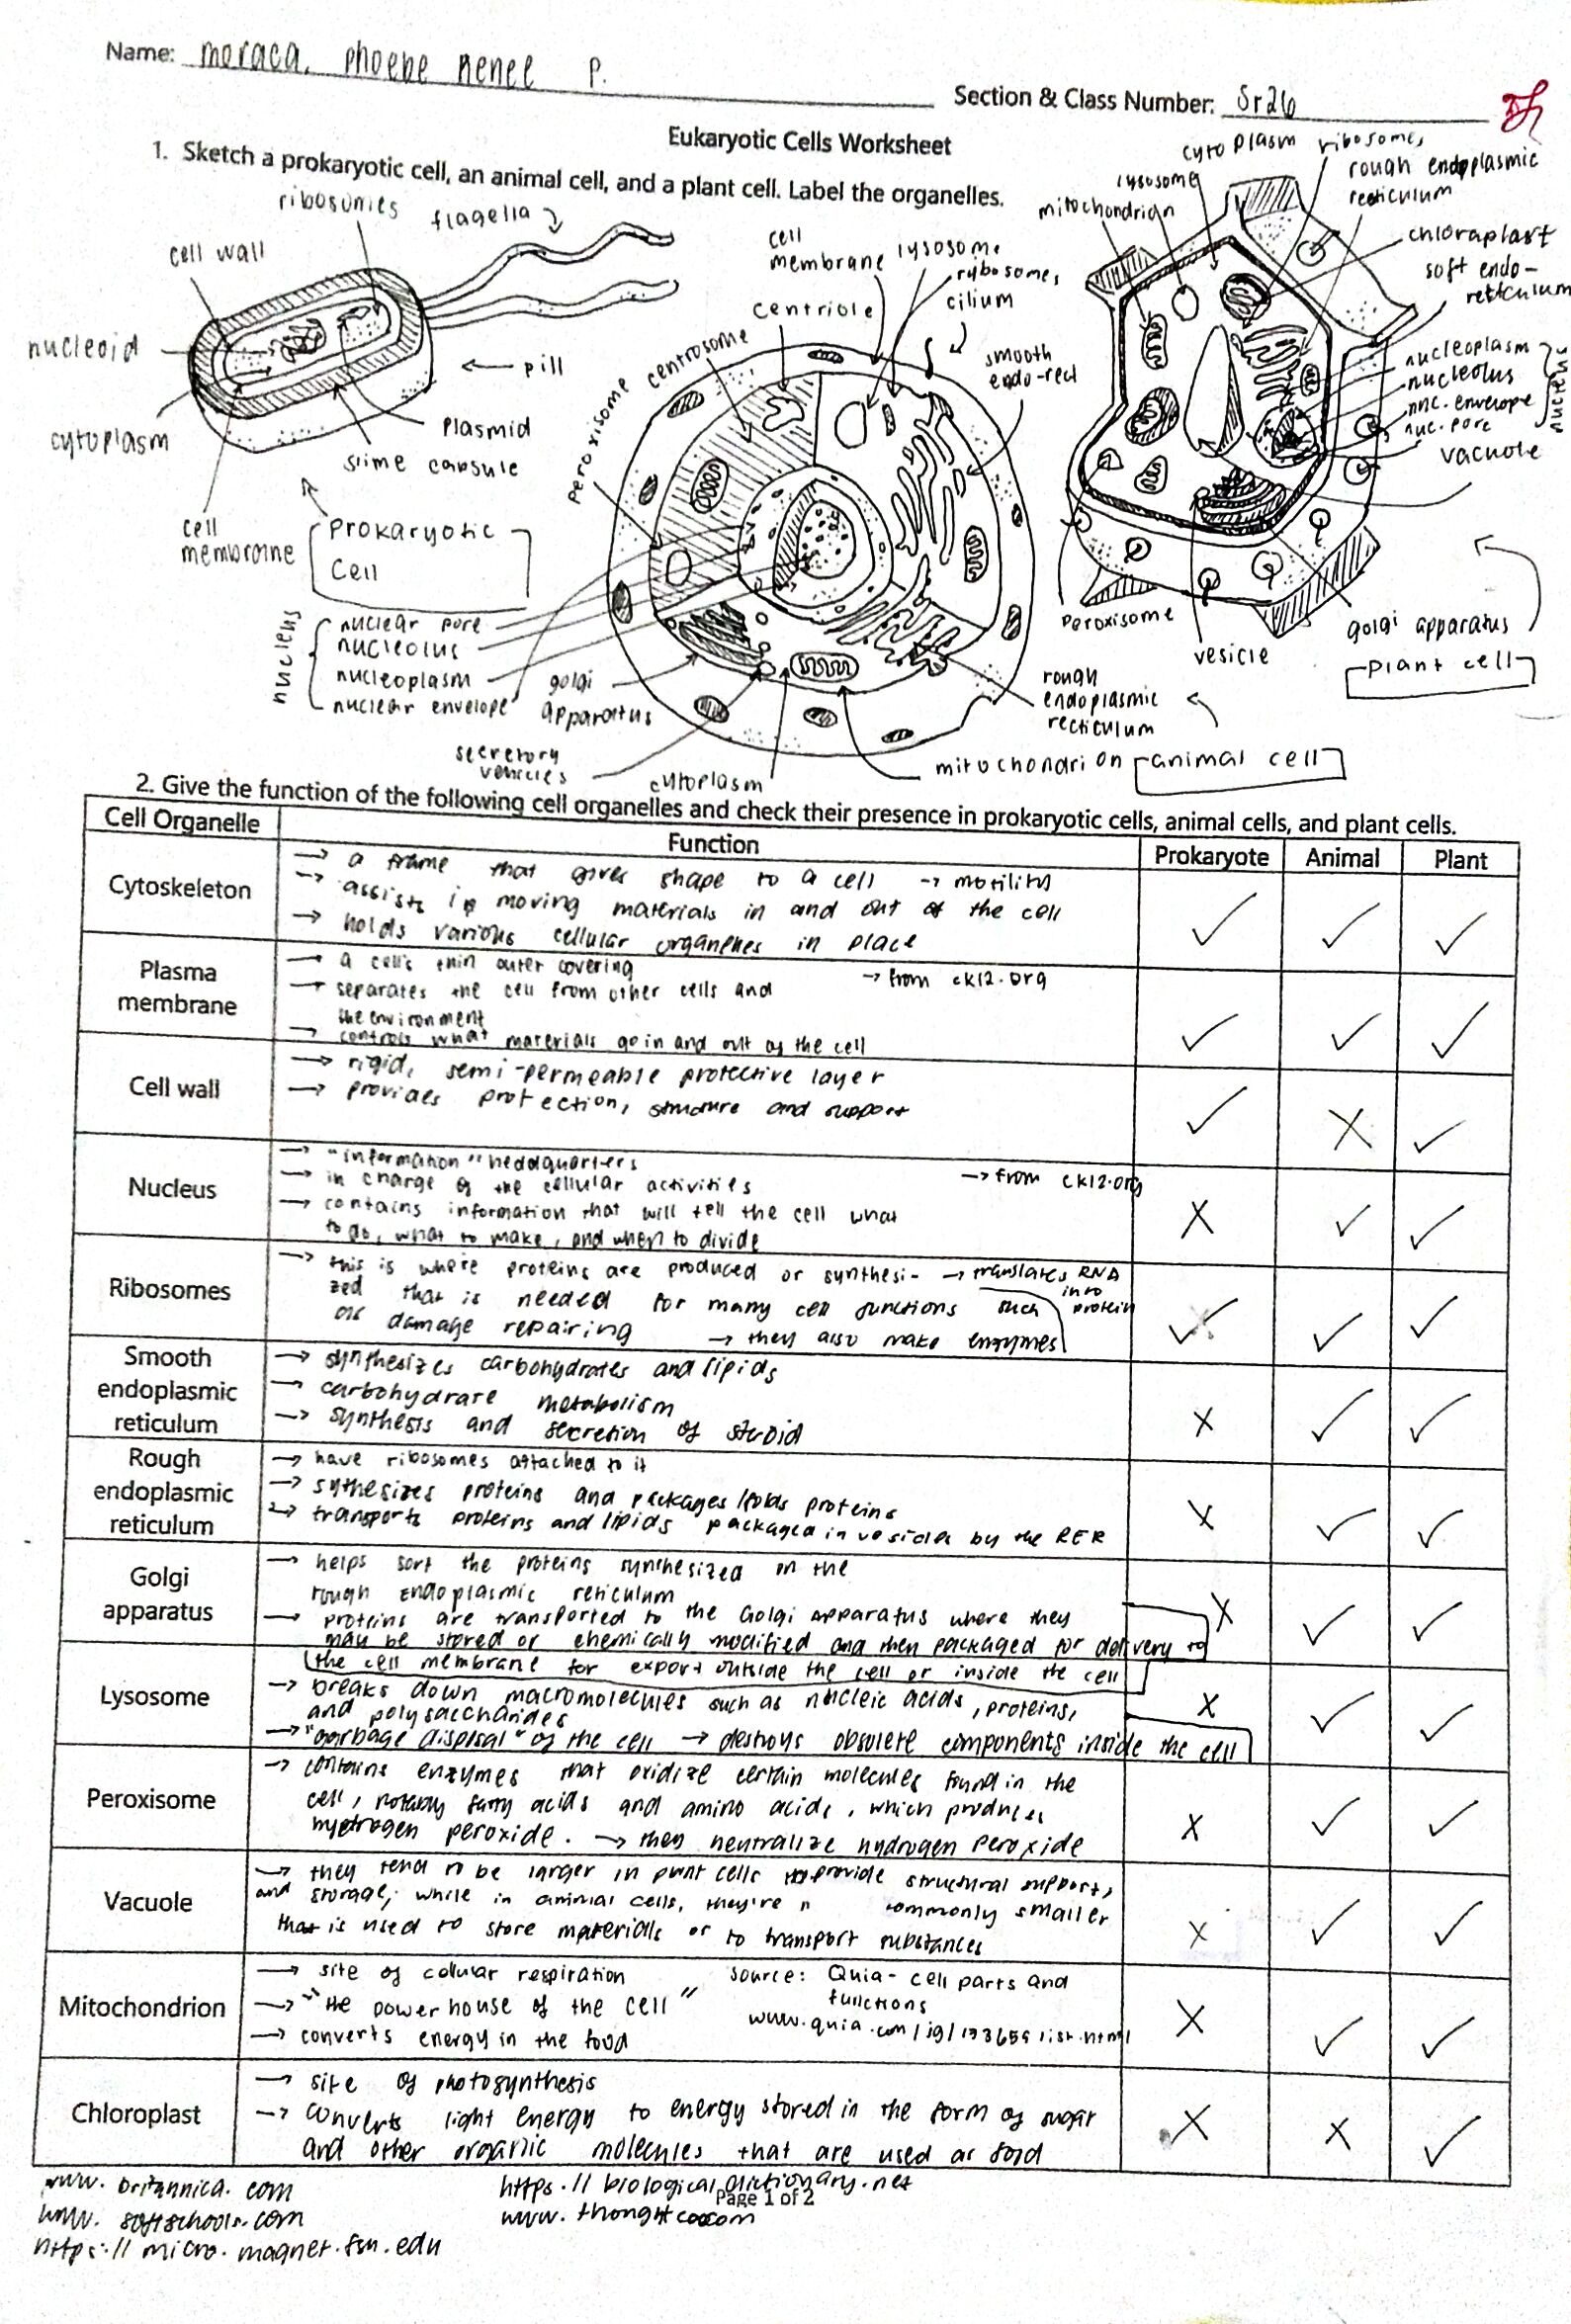 Name: moraca, phoebe renee P.
Section & Class Number: Sr26
Eukaryotic Cells Worksheet
1. Sketch a prokaryotic cell, an animal cell, and a plant cell. Label the organelles.
ribosomes
flagella
cell wall
nucleoid
pill
cytoplasm
plasmid
slime capsule
cell
membrane
Prokaryotic
Cell
cell
membrane
lysosome
ribosomes
cilium
centriole
centrosome
peroxisome
smooth
endo-rect
nucleus
nuclear pore
nucleolus
nucleoplasm
nuclear envelope
golgi
apparatus
secretory
vehicles
cytoplasm
mitochondrion
rough
endoplasmic
recticulum
animal cell
cytoplasm
ribosomes
lysosome
mitochondrion
rough endoplasmic
recticulum
chloraplast
soft endo-
recticulum
nucleoplasm
nucleolus
nuc. envelope
nuc. pore
nucleus
vacuole
Peroxisome
vesicle
golgi apparatus
plant cell
2. Give the function of the following cell organelles and check their presence in prokaryotic cells, animal cells, and plant cells.
Cell Organelle Function Prokaryote Animal Plant
Cytoskeleton
→ a frame that gives shape to a cell → motility
→ assists in moving materials in and out of the cell
→ holds various cellular organelles in place
✓ ✓ ✓
Plasma
membrane
→ a cell's thin outer covering → from ck12.org
→ separates the cell from other cells and
the environment
→ controls what materials go in and out of the cell
✓ ✓ ✓
Cell wall
→ rigid, semi-permeable protective layer
→ provides protection, structure and support
✓ X ✓
Nucleus
→ "information" headquarters
→ in charge of the cellular activities → from ck12.org
→ contains information that will tell the cell what
to do, what to make, and when to divide
X ✓ ✓
Ribosomes
→ this is where proteins are produced or synthesi- → translates RNA
into
zed that is needed for many cell functions such protein
as damage repairing → they also make enzymes
✓ ✓ ✓
Smooth
endoplasmic
reticulum
→ synthesizes carbohydrates and lipids
→ carbohydrate metabolism
→ synthesis and secretion of steroid
X ✓ ✓
Rough
endoplasmic
reticulum
→ have ribosomes attached to it
→ sythesizes proteins and packages/folds proteins
→ transports proteins and lipids packaged in vesicles by the RER
X ✓ ✓
Golgi
apparatus
→ helps sort the proteins synthesized in the
rough endoplasmic reticulum
→ proteins are transported to the Golgi apparatus where they
may be stored or chemically modified and then packaged for delivery to
the cell membrane for export outside the cell or inside the cell
X ✓ ✓
Lysosome
→ breaks down macromolecules such as nucleic acids, proteins,
and polysaccharides
→ "garbage disposal" of the cell → destroys obsolete components inside the cell
X ✓ ✓
Peroxisome
→ contains enzymes that oxidize certain molecules found in the
cell, notably fatty acids and amino acids, which produces
hydrogen peroxide. → they neutralize hydrogen peroxide
X ✓ ✓
Vacuole
→ they tend to be larger in plant cells to provide structural support,
and storage, while in animal cells, they're commonly smaller
that is used to store materials or to transport substances
X ✓ ✓
Mitochondrion
→ site of cellular respiration
→ "the powerhouse of the cell"
→ converts energy in the food
source: Quia - cell parts and
functions
X ✓ ✓
Chloroplast
→ site of photosynthesis
→ converts light energy to energy stored in the form of sugar
and other organic molecules that are used as food
X X ✓
www. britannica. com
www. softschools. com
https:// micro. magnet. fsu. edu
https:// biological dictionary. net
Page 1 of 2